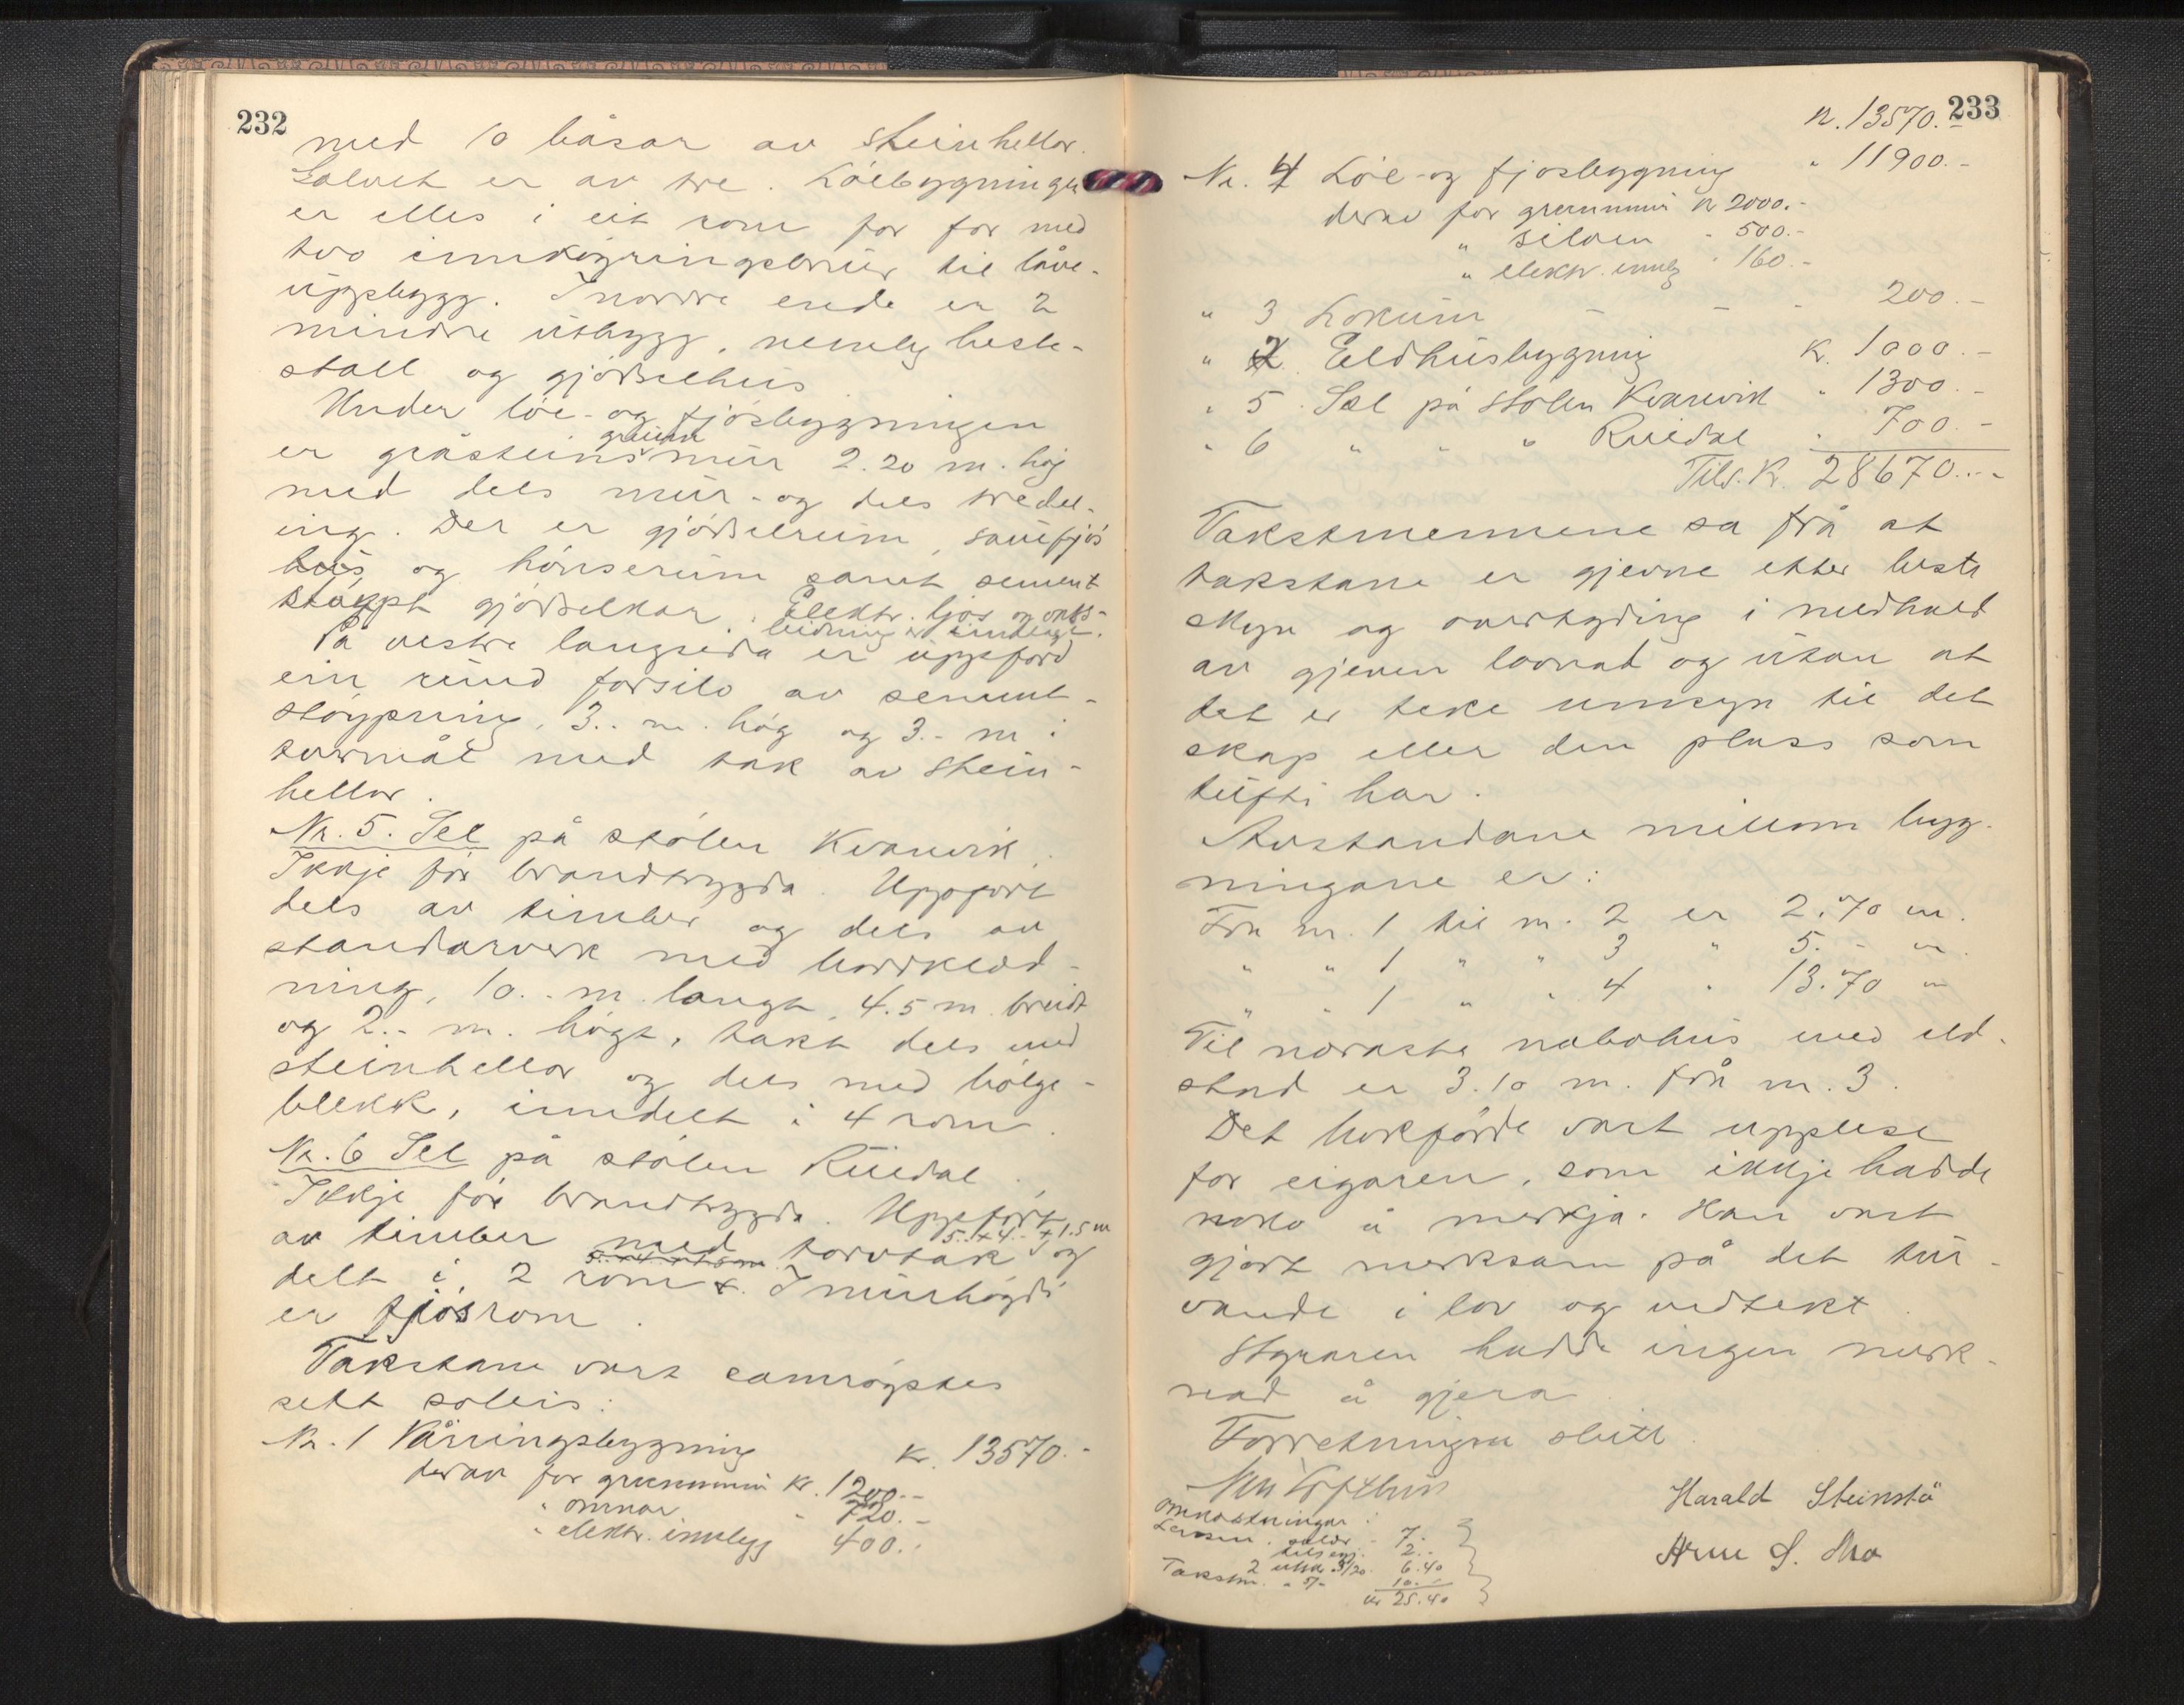 232
med 10 båsar av steinhellor.
Golvet er av tre. Löebygningen
er elles i eit rom for for med
tvo innkøyringsbruer til låve-
uppbygg. I nordre ende er 2
mindre utbygg, nemleg hest-
stall og gjödselhus
Under löe- og fjösbygningen
er gråsteins grunnmur 2.20 m. høg
med dels mur- og dels tredel-
ing. Der er gjödselrum, sauefjös
hus og hönserum samt sement
støypt gjödselkar. Elektr. ljos og
leidning er innlagt.
På vestre langsida er uppförd
ein rund forsilo av sement-
støypning, 3.- m. høg og 3.- m i
tvermål med tak av stein-
hellor.
Nr. 5. Sel på stölen Kvanvik.
Ikkje för brandtrygda. Uppfört
dels av timber og dels av
standarverk med bordklæd-
ning, 10.- m. langt, 4.5 m. breidt
og 2.- m. högt, takt dels med
steinhellor og dels med bölge-
blekk, inndelt i 4 rom.
Nr. 6 Sel på stölen Ruedal.
Ikkje för brandtrygda. Uppfört
5.- x 4.- x 1.5 m
av timber med torvtak og
delt i 2 rom. I murhögdi
er fjösrom.
Takstane vart samrøystes
sett soleis:
Nr. 1 Våningsbygning kr. 13570.-
derav for grunnmur kr. 1200.-
" omnar " 720.-
" elektr. innlegg 400.-
233
kr. 13570.-
Nr. 4 Löe- og fjösbygning " 11900.-
derav for grunnmur kr 2000.-
" siloen " 500.-
" elektr. innlegg " 160.-
" 3 Lokum - - - 200.-
" 2 Eldhusbygning kr. 1000.-
" 5 Sel på stölen Kvanvik " 1300.-
" 6 " " " Ruedal " 700.-
Tils. kr. 28670.-
Takstmennene sa frå at
takstane er gjevne etter beste
skyn og overtyding i medhald
av gjeven lovnad og utan at
det er teke umsyn til det
skap eller den plass som
tufti har.
Avstandane millom bygg-
ningane er:
Frå nr. 1 til nr. 2 er 2.70 m.
" " 1 " " 3 " 5.- m.
" " 1 " " 4 " 13.70 m
Til næraste nabohus med eld-
stad er 3.10 m. frå nr. 3.
Det bokförde vart upplese
for eigaren, som ikkje hadde
noko å merkja. Han vart
gjort merksam på det tur-
vande i lov og vedtekt.
Styraren hadde ingen merk-
nad å gjera.
Forretningen slutt
Lofthus
Harald Steinstö
Arne S. Mo
Omkostningar:
Lensm. 7.-
2.-
2 6.40
Takstm. " 5/- 10.-
kr 25.40